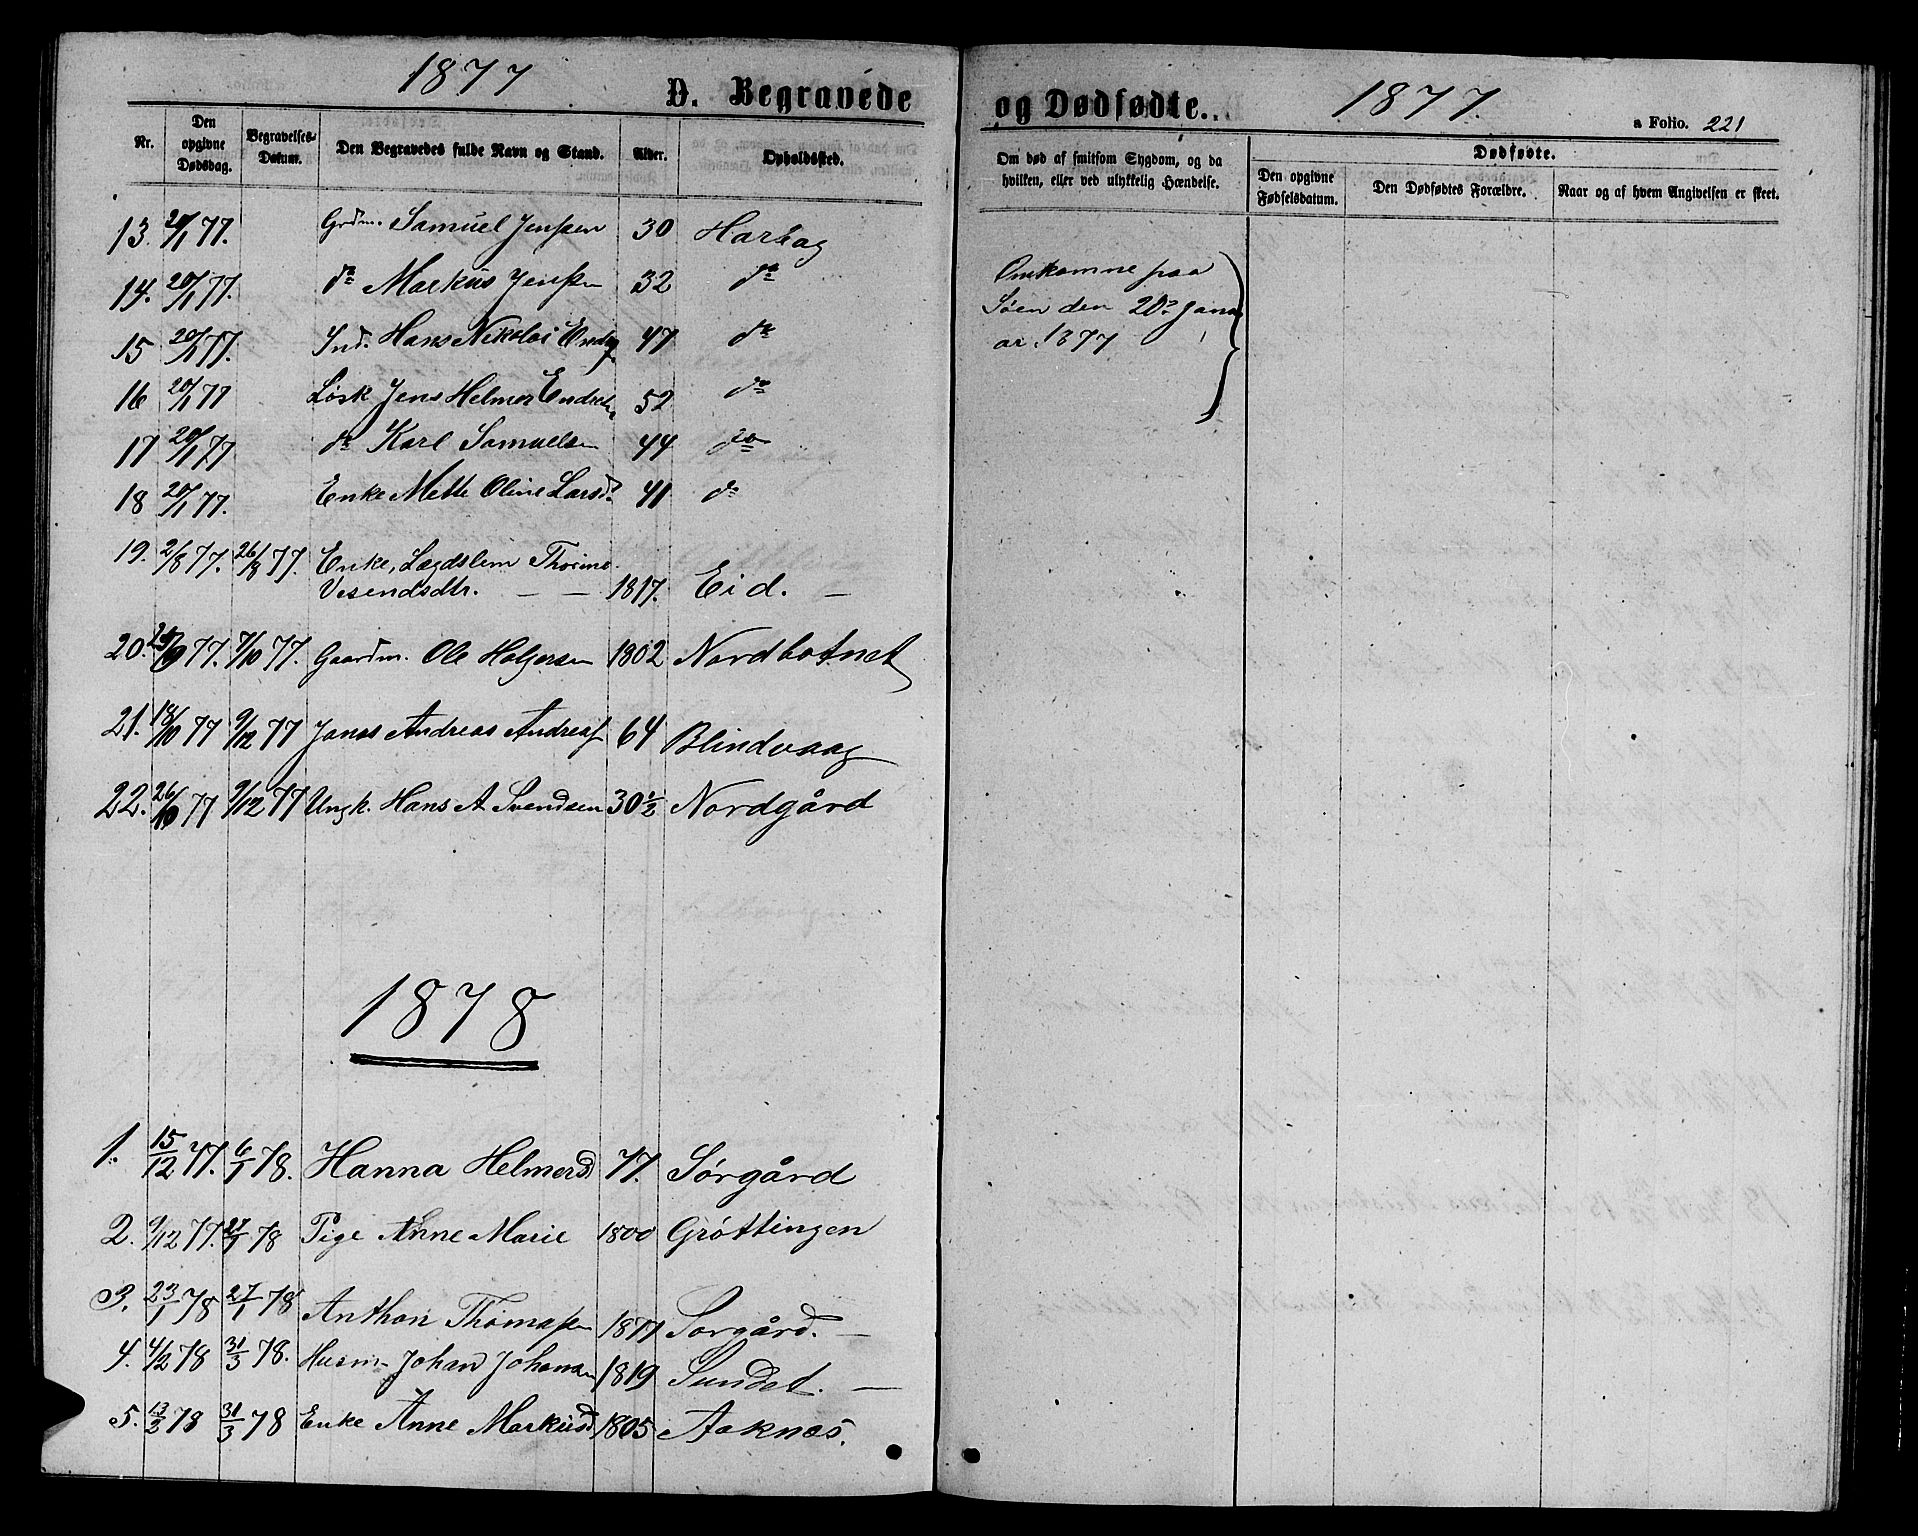 1877
D. Begravede
Nr. Den opgivne Dødsdag. Begravelses-Datum. Den Begravedes fulde Navn og Stand. Alder. Opholdssted.
13. 20/1 77. Grdm. Samuel Jenssen 30 Harbag
14. 20/1 77. do Markus Jenssen 32 do
15 20/1 77. Ind. Hans Nikolai 47 do
16 20/1 77 Løsk Jens Helmer 52 do
17 20/1 77 do Karl Samuelsen 44 do
18 20/1 77. Enke Mette Oline Larsd. 41 do
19. 2/8 77. 26/8 77. Enke, Lægdslem
— — 1817. Eid. —
20. 9 77. 7/10 77. Gaardm. Ole Holgersen 1802 Nordbotnet
21. 18/10 77 9/12 77 Jonas Andreas Andreasf 64 Blindvaag
22. 26/10 77 9/12 77 Ungk. Hans A Svendsen 30 1/2 Nordgård
1878
1. 15/12 77. 6/1 78. Hanna Helmersd 77. Sörgård
2. 9/12 77. 27/1 78 Pige Anne Marie 1800 Gröttingen
3. 23/1 78 27/1 78 Anthon Thomassen 1877 Sorgård. —
4. 4/2 78 31/3 78. Husm- Johan Johansen 1819 Sundet. —
5. 13/2 78 31/3 78 Enke Anne Markusd 1805 Aaknæs.
og Dødfødte.
1877.
a Folio. 221
Om død af smitsom Sygdom, og da hvilken, eller ved ulykkelig Hændelse.
Dødfødte.
Den opgivne Fødselsdatum. Den Dødfødtes Forældre. Naar og af hvem Angivelsen er skeet.
Omkomne paa
Söen den 20de Janu
ar 1877